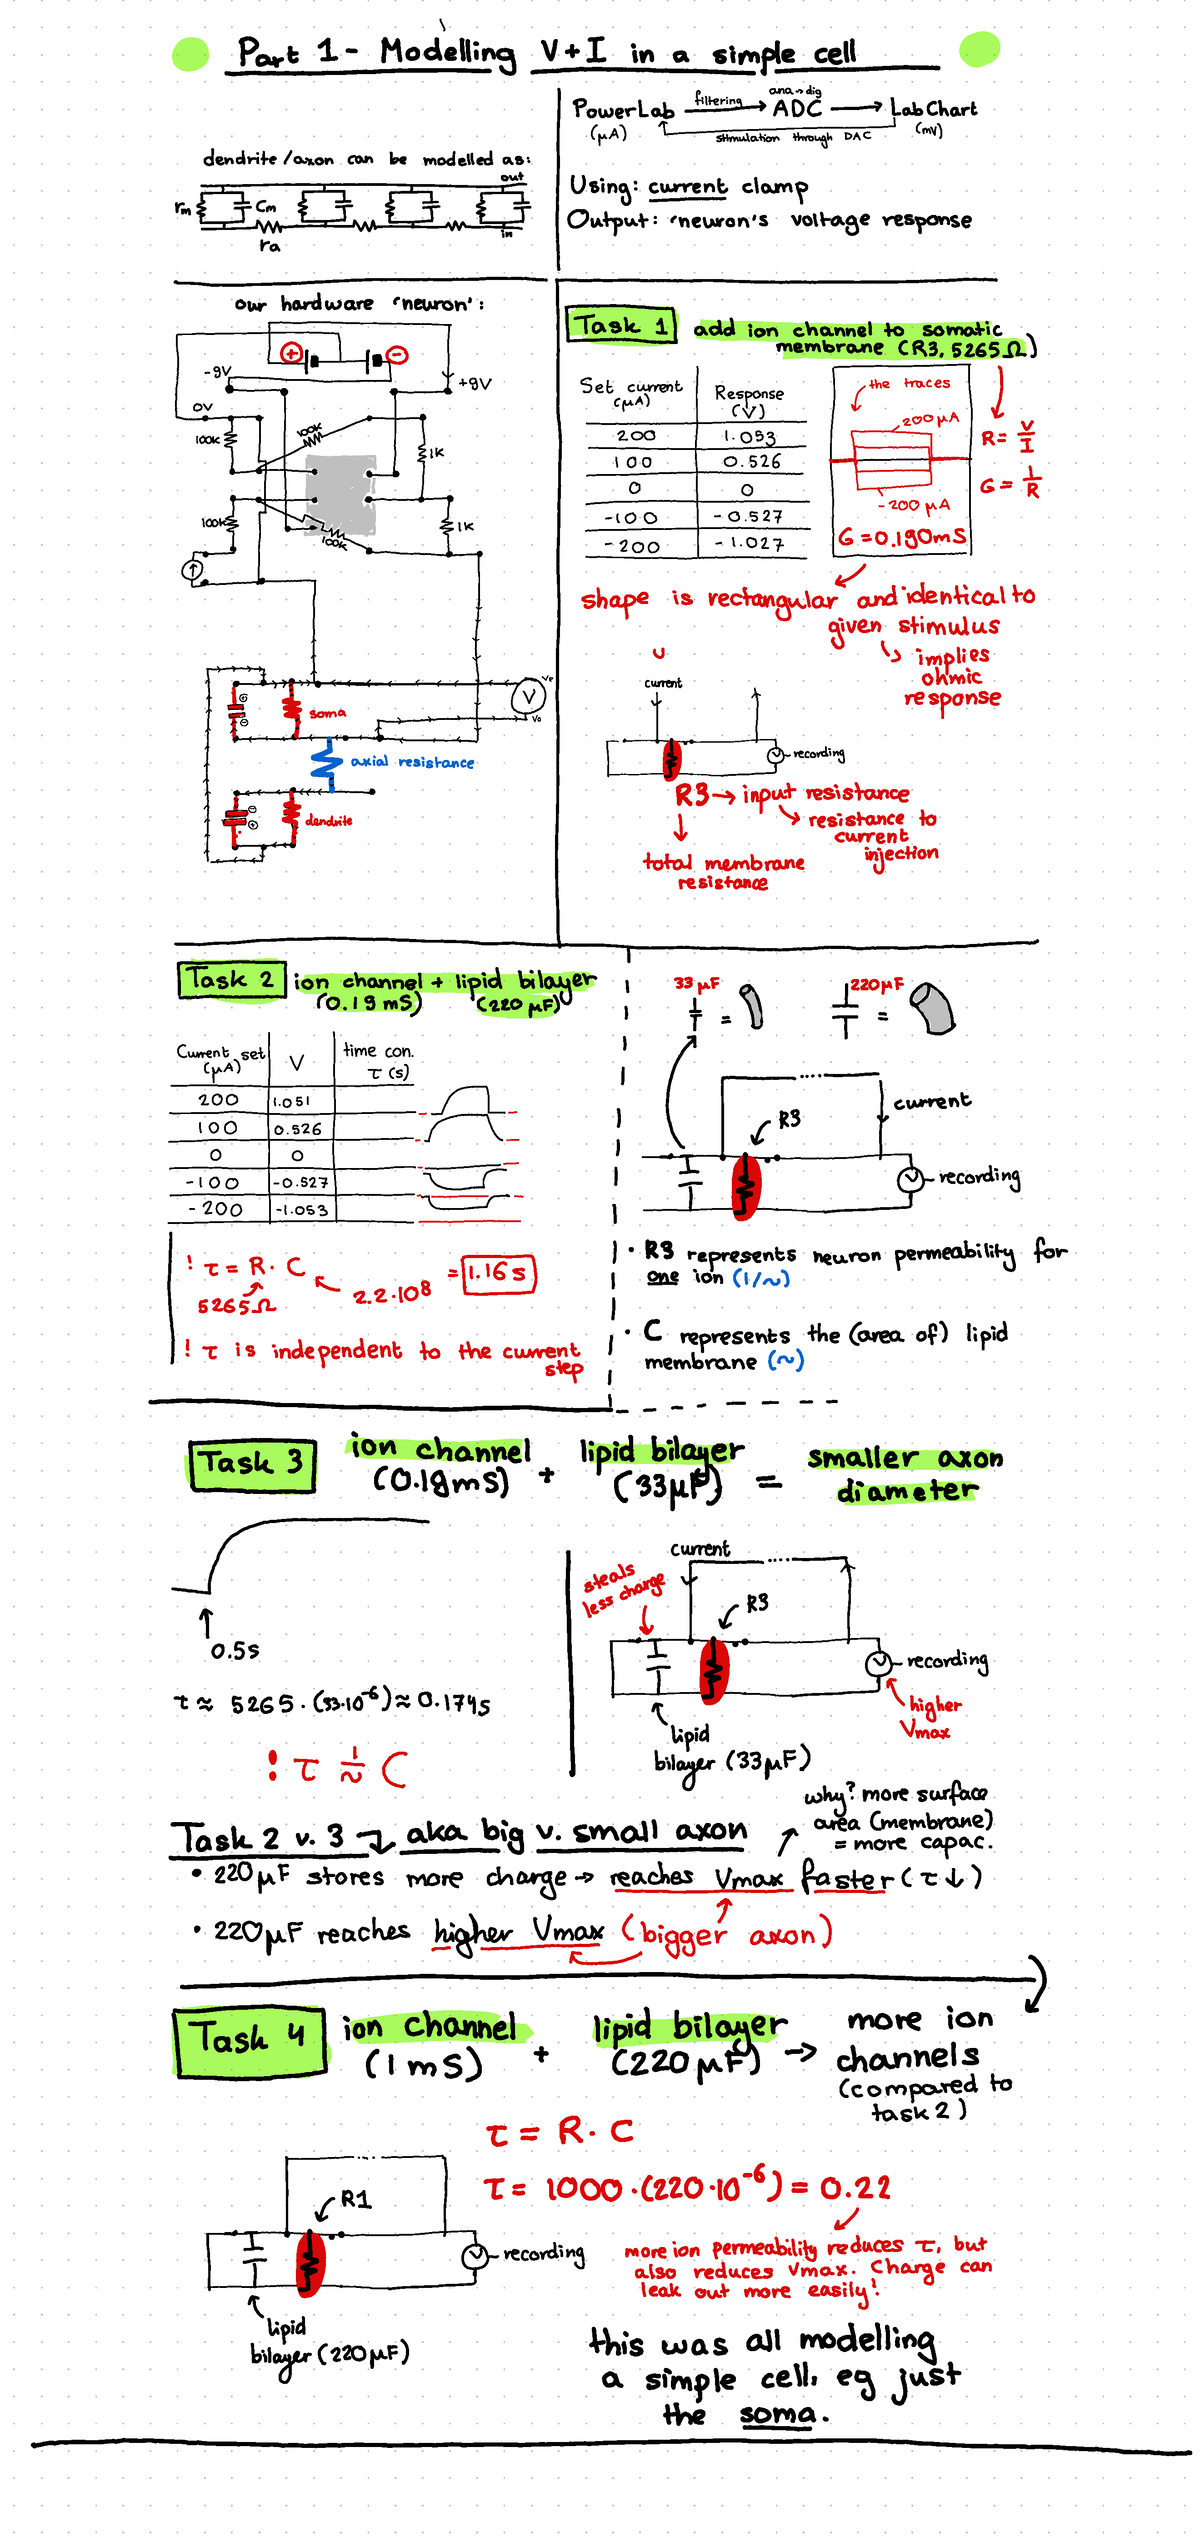 Part 1 - Modelling V+I in a simple cell
dendrite/axon can be modelled as:
out
rm
Cm
ra
in
PowerLab
(μA)
filtering
ana→dig
ADC
LabChart
(mV)
stimulation through DAC
Using: current clamp
Output: 'neuron's voltage response
our hardware 'neuron':
+
-
-9V
+9V
0V
100K
100K
1K
100K
1K
100K
V
Vo
soma
axial resistance
dendrite
Task 1
add ion channel to somatic
membrane (R3, 5265Ω)
Set current (μA) Response (V)
200 1.053
100 0.526
0 0
-100 -0.527
-200 -1.027
the traces
200 μA
-200 μA
G = 0.190mS
R = V/I
G = 1/R
shape is rectangular and identical to
given stimulus
↳ implies
ohmic
response
current
recording
R3 → input resistance
↳ resistance to
current
injection
total membrane
resistance
Task 2
ion channel + lipid bilayer
(0.19 mS) (220 μF)
Current set (μA) V time con. τ (s)
200 1.051
100 0.526
0 0
-100 -0.527
-200 -1.053
! τ = R · C = 1.16 s
5265Ω
2.2·108
! τ is independent to the current
step
33 μF
=
220μF
=
R3
current
recording
· R3 represents neuron permeability for
one ion (1/~)
· C represents the (area of) lipid
membrane (~)
Task 3
ion channel + lipid bilayer = smaller axon
(0.19mS) (33μF) diameter
0.5s
τ ≈ 5265 · (33·10⁻⁶) ≈ 0.174s
! τ 1/~ C
current
steals
less charge
R3
recording
higher
Vmax
lipid
bilayer (33μF)
Task 2 v. 3 ↴ aka big v. small axon
why? more surface
area (membrane)
= more capac.
• 220μF stores more charge → reaches Vmax faster (τ↓)
• 220μF reaches higher Vmax (bigger axon)
Task 4
ion channel + lipid bilayer → more ion
(1mS) (220μF) channels
(compared to
task 2)
τ = R · C
τ = 1000 · (220·10⁻⁶) = 0.22
R1
recording
lipid
bilayer (220μF)
more ion permeability reduces τ, but
also reduces Vmax. Charge can
leak out more easily!
this was all modelling
a simple cell, eg just
the soma.